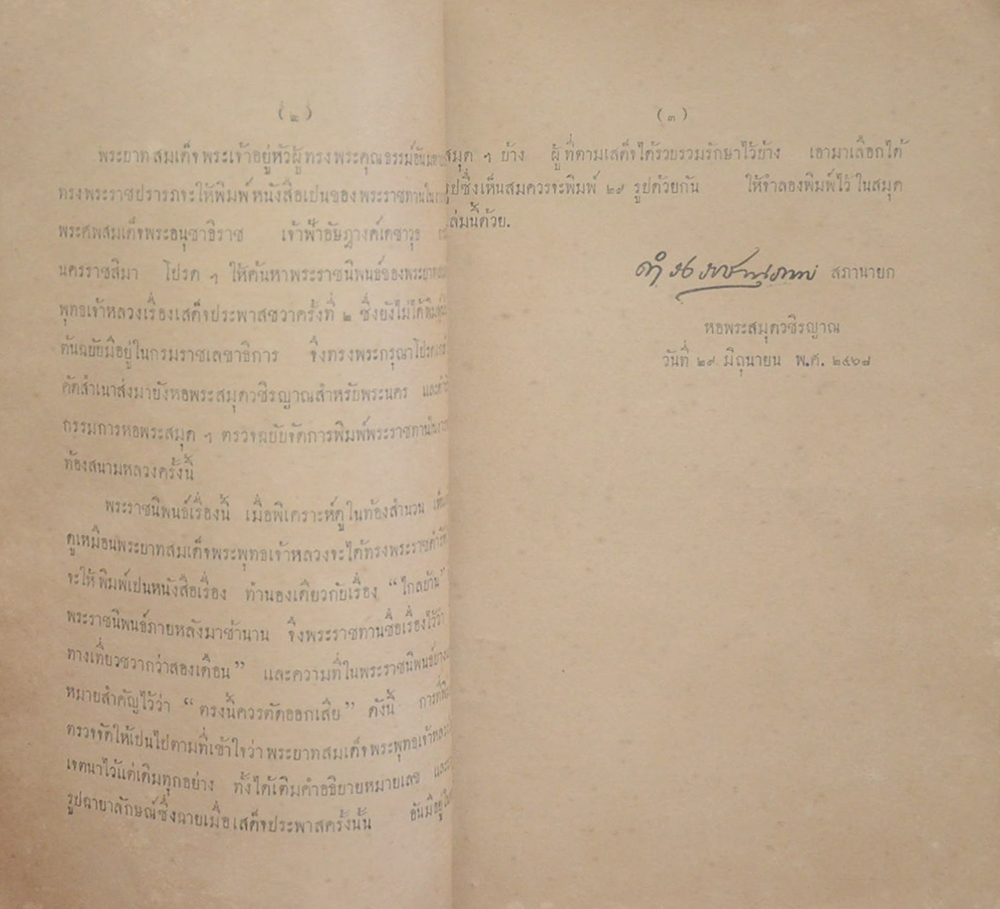 (๒)
พระบาทสมเด็จพระเจ้าอยู่หัวผู้ทรงพระคุณธรรมอัน
ทรงพระราชปรารภจะให้พิมพ์หนังสือเปนของพระราชทานใน
พระศพสมเด็จพระอนุชาธิราช เจ้าฟ้าอัษฎางค์เดชาวุธ
นครราชสิมา โปรด ฯ ให้ค้นหาพระราชนิพนธ์ของพระบาท
พุทธเจ้าหลวงเรื่องเสด็จประพาสชวาครั้งที่ ๒ ซึ่งยังไม่ได้พิมพ์
ต้นฉบับมีอยู่ในกรมราชเลขาธิการ จึงทรงพระกรุณาโปรด
คัดสำเนาส่งมายังหอพระสมุดวชิรญาณสำหรับพระนคร และ
กรรมการหอพระสมุด ฯ ตรวจฉบับจัดการพิมพ์พระราชทานใน
ท้องสนามหลวงครั้งนี้
พระราชนิพนธ์เรื่องนี้ เมื่อพิเคราะห์ดูในท้องสำนวน
ดูเหมือนพระบาทสมเด็จพระพุทธเจ้าหลวงจะได้ทรงพระราชดำริ
จะให้พิมพ์เปนหนังสือเรื่อง ทำนองเดียวกับเรื่อง “ไกลบ้าน”
พระราชนิพนธ์ภายหลังมาช้านาน จึงพระราชทานชื่อเรื่องไว้ว่า
ทางเที่ยวชวากว่าสองเดือน” และความที่ในพระราชนิพนธ์
หมายสำคัญไว้ว่า “ตรงนี้ควรตัดออกเสีย” ดังนี้
ตรวจจัดให้เปนไปตามที่เข้าใจว่าพระบาทสมเด็จพระพุทธเจ้าหลวง
เจตนาไว้แต่เดิมทุกอย่าง ทั้งได้เติมคำอธิบายหมายเลข
รูปฉายาลักษณ์ซึ่งฉายเมื่อเสด็จประพาสครั้งนั้น อันมีอยู่ใน
(๓)
สมุด ฯ บ้าง ผู้ที่ตามเสด็จได้รวบรวมรักษาไว้บ้าง เอามาเลือกได้
รูปซึ่งเห็นสมควรจะพิมพ์ ๒๙ รูปด้วยกัน ให้จำลองพิมพ์ไว้ในสมุด
เล่มนี้ด้วย.
ดำรงราชานุภาพ สภานายก
หอพระสมุดวชิรญาณ
วันที่ ๒๙ มิถุนายน พ.ศ. ๒๔๖๗